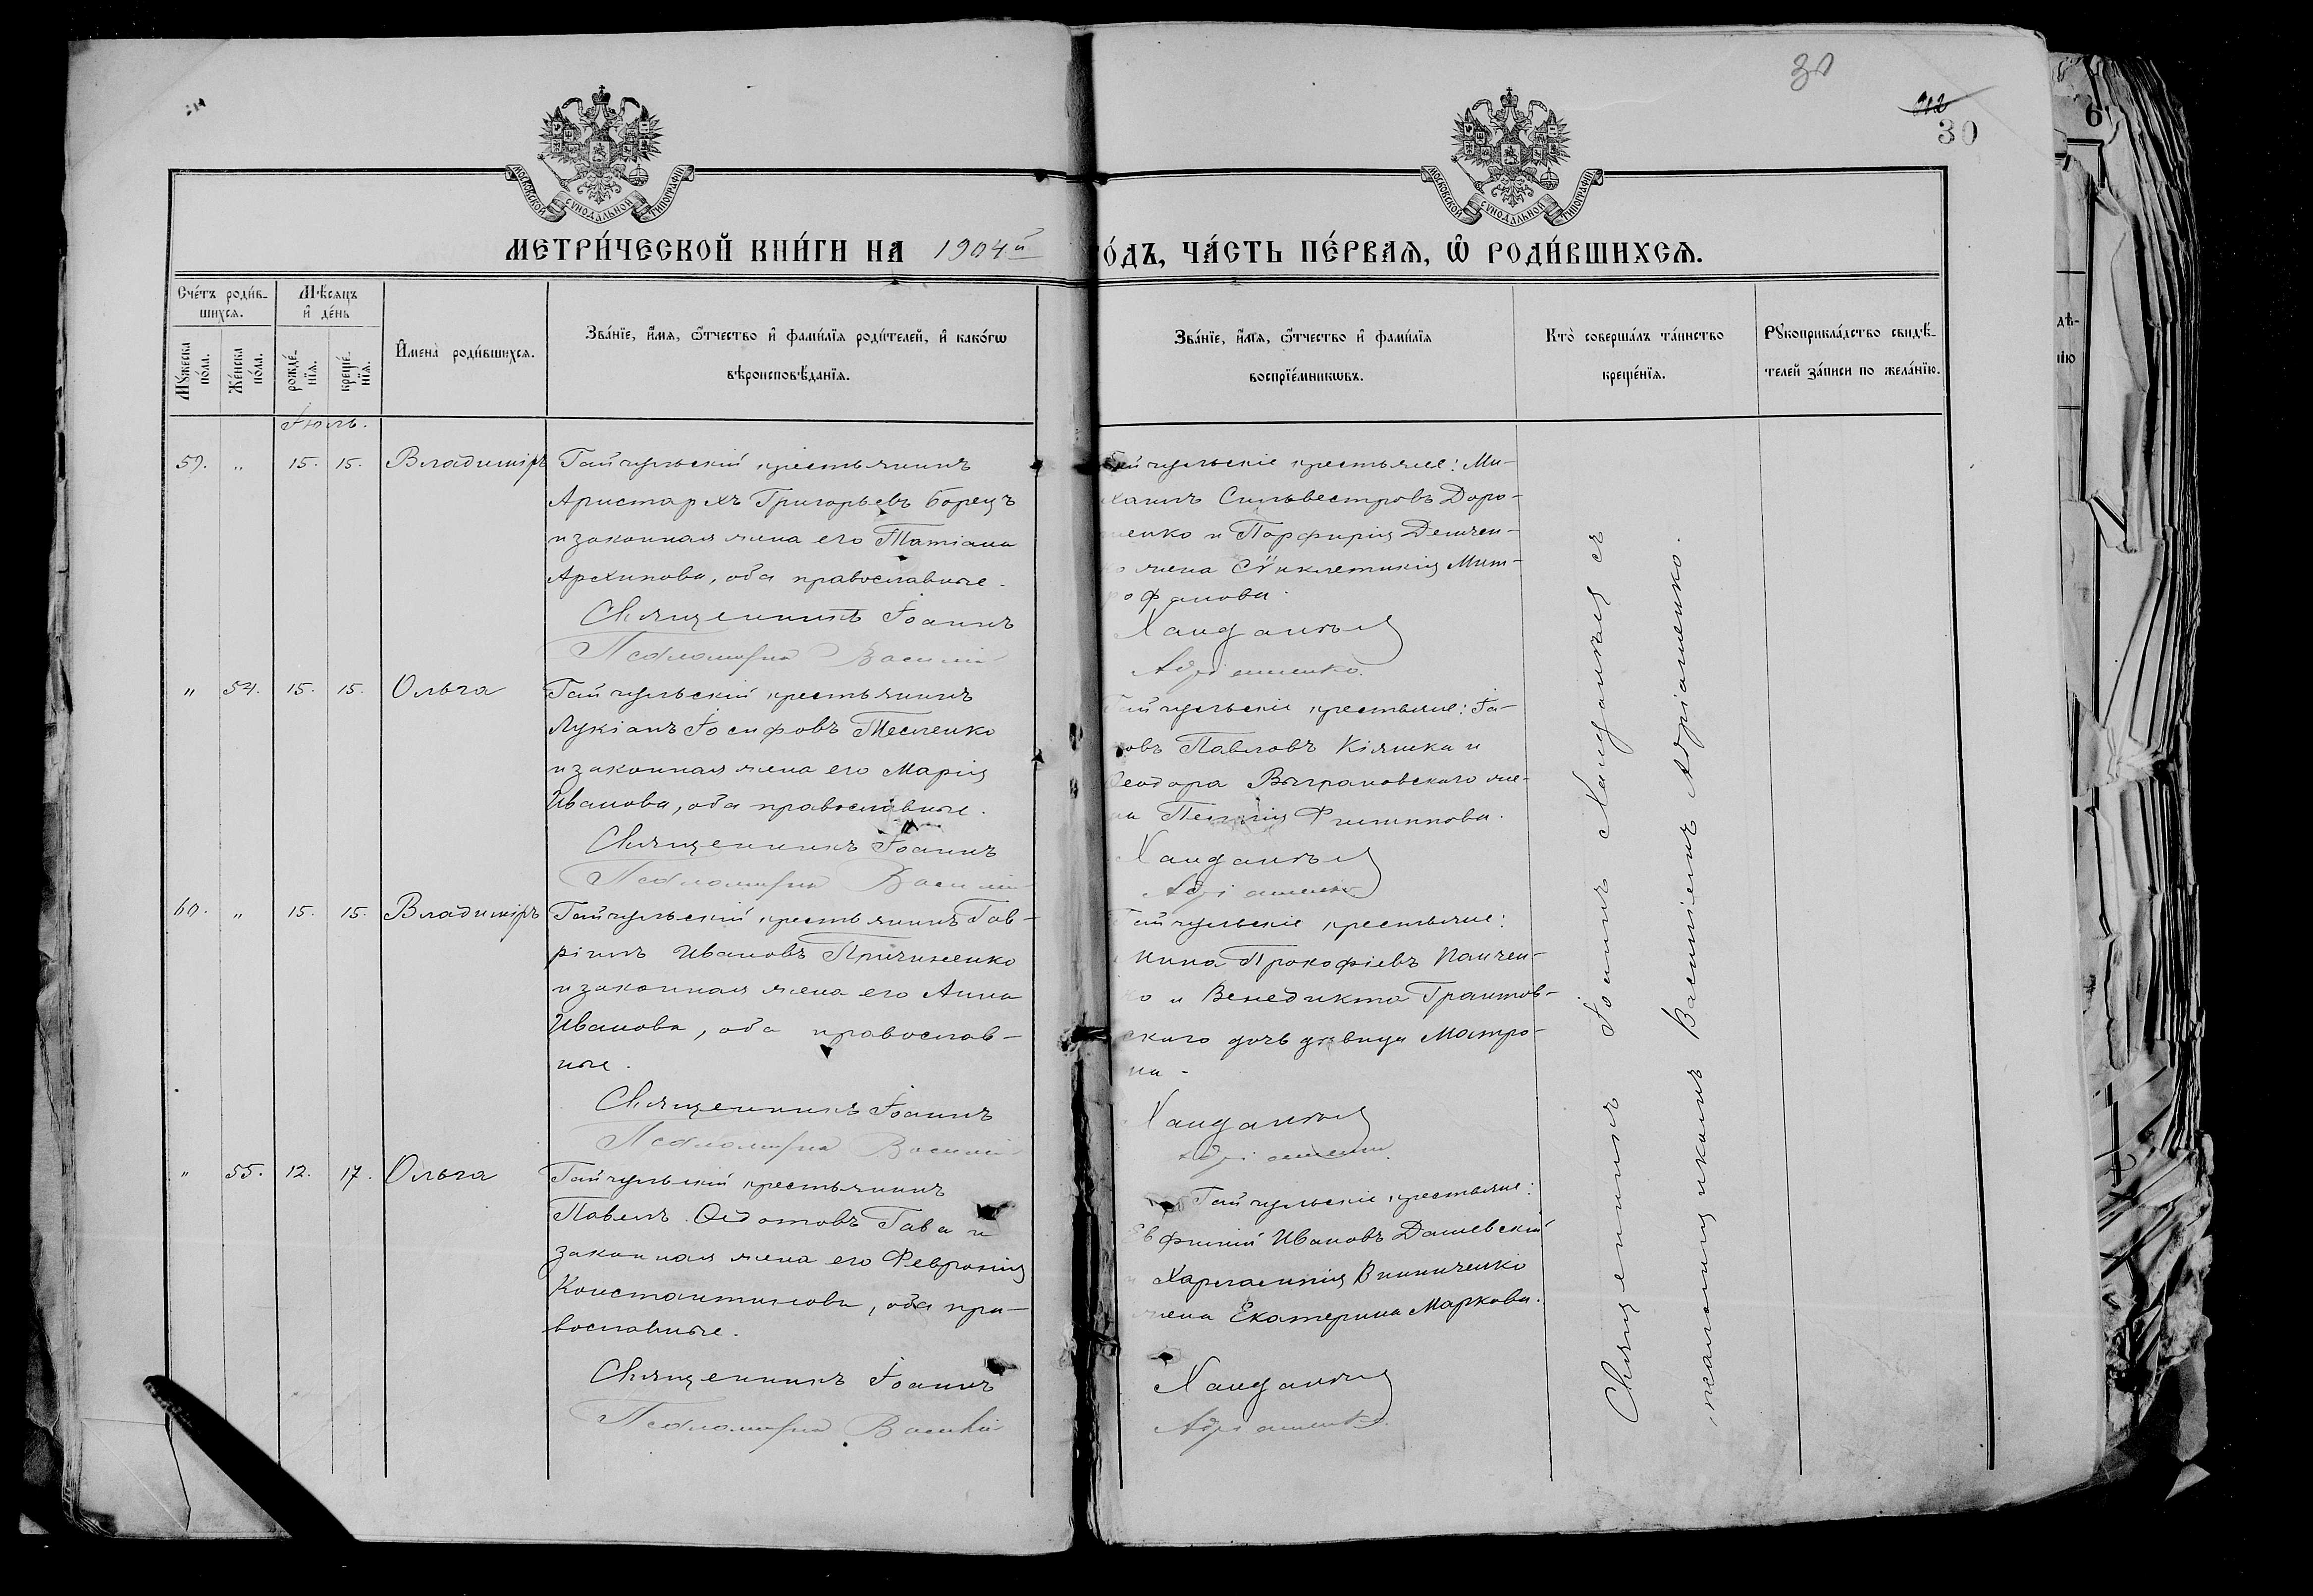 30
30
МОСКОВСКОЙ СУНОДАЛЬНОЙ ТИПОГРАФІИ
МОСКОВСКОЙ СУНОДАЛЬНОЙ ТИПОГРАФІИ
МЕТРИ́ЧЕСКОЙ КНИ́ГИ НА 1904й
О́ДЪ, ЧА́СТЬ ПЕ́РВАѦ, Ѡ҆ РОДИ́ВШИХСѦ.
Сче́тъ роди́в-
шихсѧ.
Мꙋжеска по́ла.
Же́нска по́ла.
Мѣ́сѧцъ
и҆ де́нь
рожде́-нїѧ.
креще́-нїѧ.
И҆мена̀ роди́вшихсѧ.
Зва́нїе, и҆́мѧ, ѻ҆́тчество и҆ фами́лїѧ роди́телей, и҆ како́гѡ
вѣроисповѣ́данїѧ.
Зва́нїе, и҆́мѧ, ѻ҆́тчество и҆ фами́лїѧ
воспрїе́мникѡвъ.
Кто̀ соверша́лъ та́инство
креще́нїѧ.
Рꙋкоприкла́дство свидѣ́-
телей за́писи по жела́нїю.
Іюль.
59. " 15. 15. Владиміръ
Гайчульскій крестьянинъ
Аристархъ Григорьевъ Борецъ
и законная жена его Татіана
Архипова, оба православные.
Священникъ Іоаннъ
Псаломщикъ Василій
Гайчульскіе крестьяне: Ми-
хаилъ Сильвестровъ Доро-
шенко и Порфирія Демчен-
ко жена Сүнклетикія Мит-
рофанова.
Адріаненко.
" 54. 15. 15. Ольга
Гайчульскій крестьянинъ
Лукіанъ Іосифовъ Тесленко
и законная жена его Марія
Иванова, оба православные.
Священникъ Іоаннъ
Псаломщикъ Василій
Гайчульскіе крестьяне: Іа-
ковъ Павловъ Кіяшка и
Ѳеодора Выграновскаго же-
на Филиппова.
Адріаненко
60. " 15. 15. Владиміръ
Гайчульскій крестьянинъ Гав-
ріилъ Ивановъ Причиненко
и законная жена его Анна
Иванова, оба православ-
ные.
Священникъ Іоаннъ
Псаломщикъ Василій
Гайчульскіе крестьяне:
Прокофіевъ Панчен-
ко и Венедикта Грантов-
скаго дочь дѣвица Матро-
на.
Адріаненко.
" 55. 12. 17. Ольга
Гайчульскій крестьянинъ
Павелъ Ѳедотовъ Гава и
законная жена его Февронія
Константинова, оба пра-
вославные.
Священникъ Іоаннъ
Псаломщикъ Василій
Гайчульскіе крестьяне:
Евфимій Ивановъ Дашевскій
и Харлампія Винниченко
жена Екатерина Маркова.
Адріаненко.
Священникъ Іоаннъ съ
псаломщикомъ Василіемъ Адріаненко.